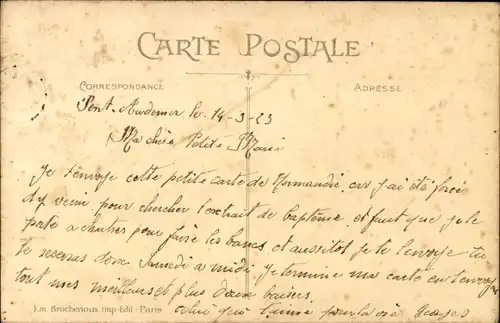 CARTE POSTALE
CORRESPONDANCE
ADRESSE
Pont-Audemer le 14-3-23
Ma chère Petite Marie
Je t'envoye cette petite carte de Normandie car j'ai été forcé
d'y venir pour chercher l'extrait de baptême et faut que je le
porte a pour faire les bancs et aussitot je te l'envoye tu
le receveras donc Samedi a midi. Je termine ma carte en t'envoyant
tout mes meilleurs et plus doux baisers.
Em. Brocherioux, Imp-Edit - Paris
Celui qui t'aime pour la vie Georges